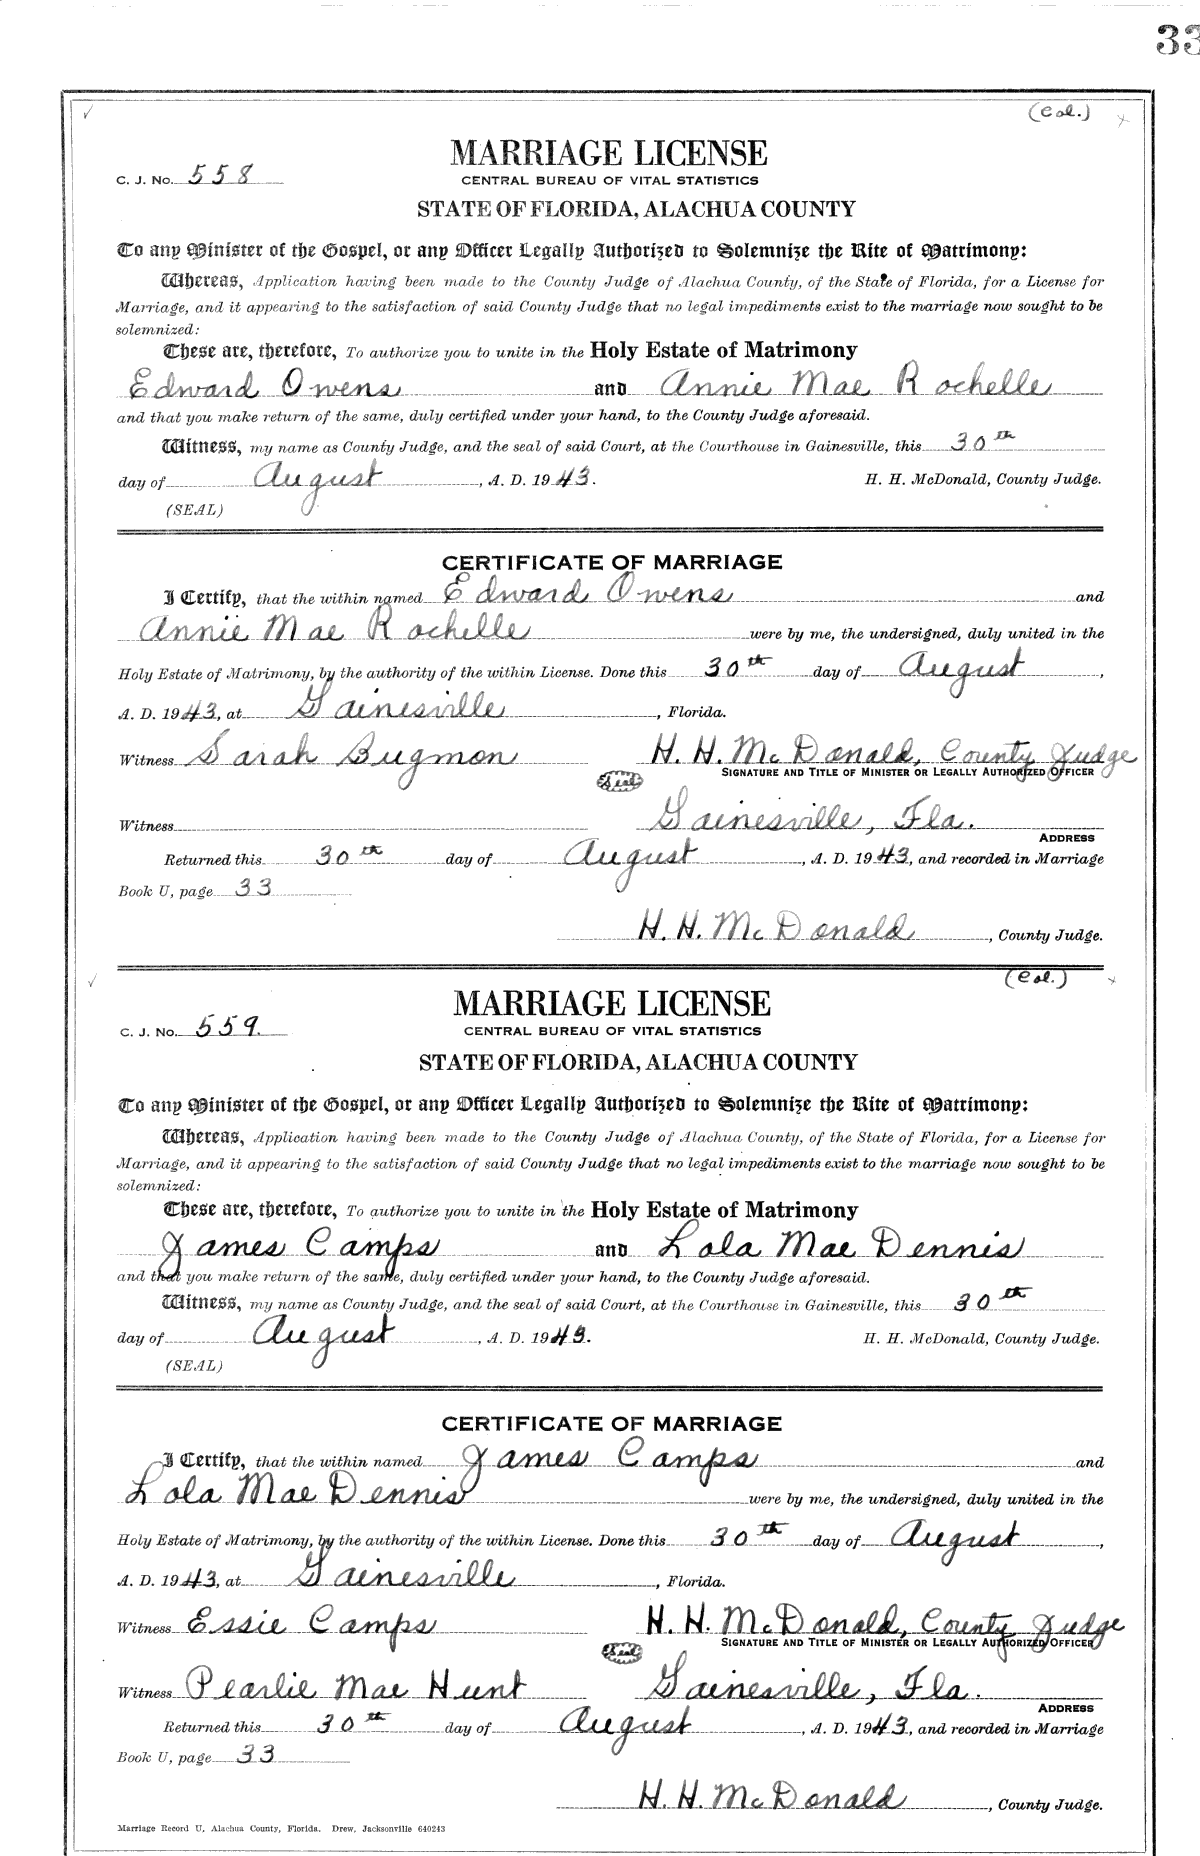 33
(Col.)
MARRIAGE LICENSE
C. J. No. 558
CENTRAL BUREAU OF VITAL STATISTICS
STATE OF FLORIDA, ALACHUA COUNTY
To any Minister of the Gospel, or any Officer Legally Authorized to Solemnize the Rite of Matrimony:
Whereas, Application having been made to the County Judge of Alachua County, of the State of Florida, for a License for
Marriage, and it appearing to the satisfaction of said County Judge that no legal impediments exist to the marriage now sought to be
solemnized:
These are, therefore, To authorize you to unite in the Holy Estate of Matrimony
Edward Owens and Annie Mae Rochelle
and that you make return of the same, duly certified under your hand, to the County Judge aforesaid.
Witness, my name as County Judge, and the seal of said Court, at the Courthouse in Gainesville, this 30th
day of August, A. D. 1943. H. H. McDonald, County Judge.
(SEAL)
CERTIFICATE OF MARRIAGE
I Certify, that the within named Edward Owens and
Annie Mae Rochelle were by me, the undersigned, duly united in the
Holy Estate of Matrimony, by the authority of the within License. Done this 30th day of August,
A. D. 1943, at Gainesville, Florida.
Witness Sarah Bugmon H. H. McDonald, County Judge
Seal SIGNATURE AND TITLE OF MINISTER OR LEGALLY AUTHORIZED OFFICER
Witness Gainesville, Fla.
ADDRESS
Returned this 30th day of August, A. D. 1943, and recorded in Marriage
Book U, page 33
H. H. McDonald, County Judge.
(Col.)
MARRIAGE LICENSE
C. J. No. 559.
CENTRAL BUREAU OF VITAL STATISTICS
STATE OF FLORIDA, ALACHUA COUNTY
To any Minister of the Gospel, or any Officer Legally Authorized to Solemnize the Rite of Matrimony:
Whereas, Application having been made to the County Judge of Alachua County, of the State of Florida, for a License for
Marriage, and it appearing to the satisfaction of said County Judge that no legal impediments exist to the marriage now sought to be
solemnized:
These are, therefore, To authorize you to unite in the Holy Estate of Matrimony
James Camps and Lola Mae Dennis
and that you make return of the same, duly certified under your hand, to the County Judge aforesaid.
Witness, my name as County Judge, and the seal of said Court, at the Courthouse in Gainesville, this 30th
day of August, A. D. 1943. H. H. McDonald, County Judge.
(SEAL)
CERTIFICATE OF MARRIAGE
I Certify, that the within named James Camps and
Lola Mae Dennis were by me, the undersigned, duly united in the
Holy Estate of Matrimony, by the authority of the within License. Done this 30th day of August,
A. D. 1943, at Gainesville, Florida.
Witness Essie Camps H. H. McDonald, County Judge
Seal SIGNATURE AND TITLE OF MINISTER OR LEGALLY AUTHORIZED OFFICER
Witness Pearlie Mae Hunt Gainesville, Fla.
ADDRESS
Returned this 30th day of August, A. D. 1943, and recorded in Marriage
Book U, page 33
H. H. McDonald, County Judge.
Marriage Record U, Alachua County, Florida. Drew, Jacksonville 640243